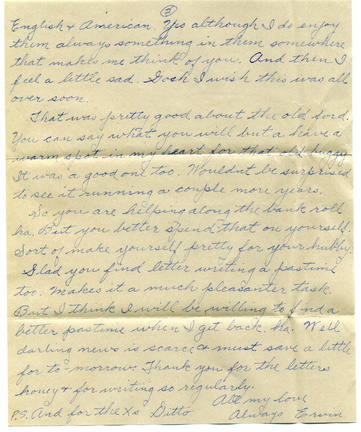 ③
English & American. Yes although I do enjoy
them always something in them somewhere
that makes me think of you. And then I
feel a little sad. Gosh I wish this was all
over soon.
That was pretty good about the old ford.
You can say what you will but a have a
warm spot in my heart for that old buggy
It was a good one too. Wouldnt be surprised
to see it running a couple more years.
So you are helping along the bank roll
ha. But you better spend that on yourself.
Sort of make yourself pretty for your hubby.
Glad you find letter writing a pastime
too. Makes it a much pleasanter task.
But I think I will be willing to find a
better pastime when I get back. ha. Well
darling news is scarce & must save a little
for to-morrow. Thank you for the letters
honey & for writing so regularly.
All my love
P.S. And for the Xs Ditto Always Erwin